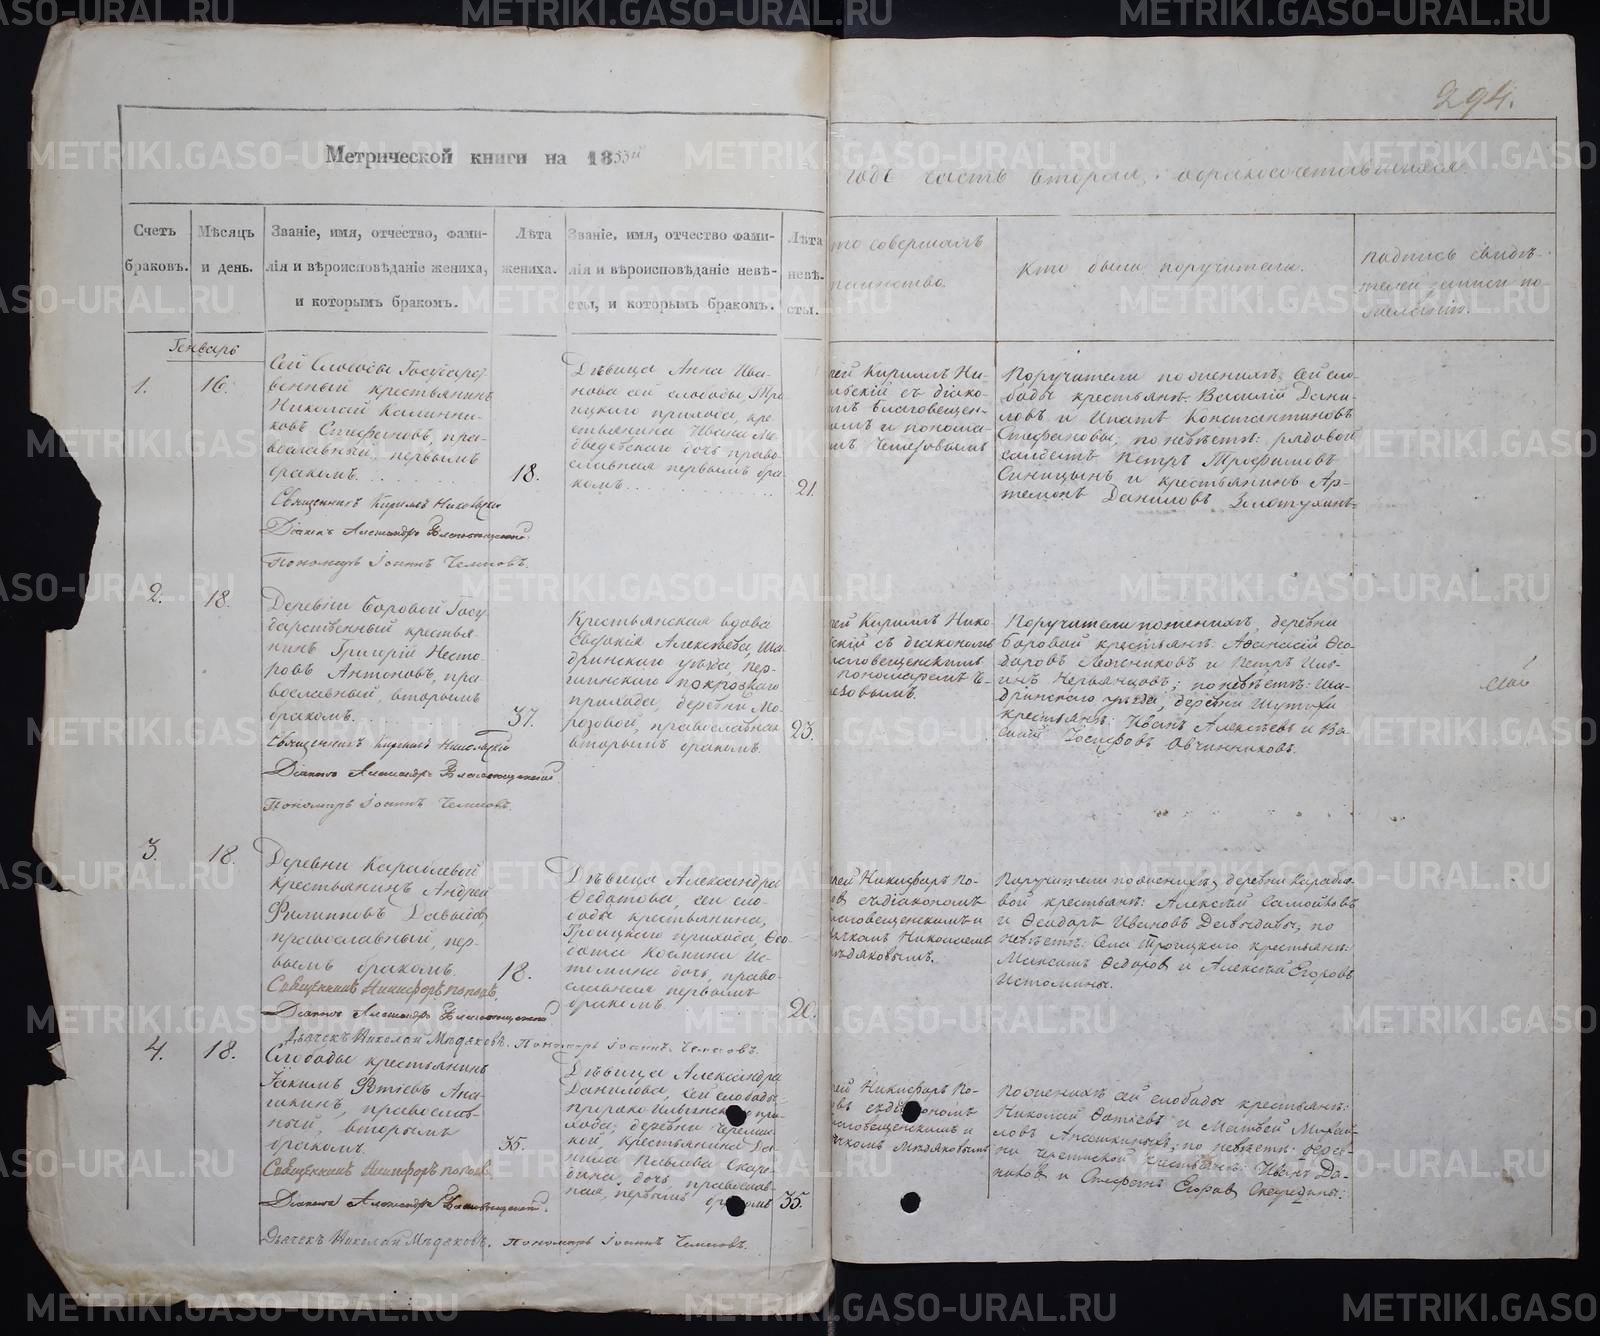 294.
Метрической книги на 1853й
годъ часть вторая, о бракосочетавшихся.
Счетъ браковъ.
Мѣсяцъ и день.
Званіе, имя, отчество, фами-
лія и вѣроисповѣданіе жениха,
и которымъ бракомъ.
Лѣта
жениха.
Званіе, имя, отчество фами-
лія и вѣроисповѣданіе невѣ-
сты, и которымъ бракомъ.
Лѣта
невѣ-
сты.
то совершалъ
таинство.
Кто были поручители.
Подпись свидѣ-
телей записи по
желанію.
Генварь
1.
16.
Сей Слободы Государс
венный крестьянинъ
Николай Калинни-
ковъ Стефановъ, пра-
вославный, первымъ
бракомъ.
18.
Священникъ Кириллъ Никольскій
Діаконъ Александръ Благовещенскій.
Пономарь Іоаннъ
Дѣвица Анна Ива-
нова сей слободы, Тро-
ицкаго прихода, кре-
стьянина Ивана Ме-
дведевскаго дочь право-
славная первымъ бра-
комъ.
21.
рей Кириллъ Ни-
льскій съ діако-
мъ Благовещен-
имъ и понома-
Поручители по женихѣ; сей сло-
боды крестьянѣ: Василій Дани-
ловъ и Ипатъ Константиновъ
Стефановы, по невѣстѣ: рядовой
солдатъ Петръ Трофимовъ
Синицынъ и крестьянинъ Ар-
темонъ Даниловъ Золотухинъ
2.
18.
Деревни Боровой Госу
дарственный крестья-
нинъ Григорій Несто-
ровъ Антоновъ, пра-
вославный, вторымъ
бракомъ.
37.
Священникъ Кириллъ Никольскій
Діаконъ Александръ Благовещенскій
Пономарь Іоаннъ
Крестьянская вдова
Евдокія Алексѣева, Ша-
дринскаго уѣзда,
покровскаго
прихода, деревни Мо-
розовой, православная
вторымъ бракомъ.
23.
рей Кириллъ Нико-
скій съ діакономъ
лаговещенскимъ
пономаремъ
Поручители по женихѣ, деревни
Боровой крестьянѣ: Афанасій Ѳео-
доровъ и Петръ
по невѣстѣ: Ша-
дринскаго уѣзда, деревни Шутихи
крестьянѣ: Иванъ Алексѣевъ и Ва-
силій Іосифовъ Овчинниковъ.
3.
18.
Деревни Караблевой
крестьянинъ Андрей
Филипповъ Давыдовъ
православный, пер-
вымъ бракомъ.
18.
Священникъ Никифоръ Поповъ.
Діаконъ Александръ Благовещенскій
Дьячекъ Николай Мидяковъ. Пономарь Іоаннъ
Дѣвица Александра
Ѳедотова, сей сло-
боды крестьянина,
Троицкаго прихода, Ѳео-
дота Косьмина Ис-
томина дочь, право-
славная первымъ
бракомъ.
20.
рей Никифоръ По-
съ діакономъ
лаговещенскимъ и
ячкомъ Николаемъ
идяковымъ.
Поручители по женихѣ, деревни Карабле-
вой крестьянѣ: Алексѣй Самойловъ
и Ѳеодоръ Ивановъ Давыдовы, по
невѣстѣ: Села Троицкаго крестьянѣ:
Максимъ Ѳедоровъ и Алексѣй Егоровъ
Истомины.
4.
18.
Слободы крестьянинъ
Іакимъ Фотіевъ Апа-
шкинъ, православ-
ный, вторымъ
бракомъ.
35.
Священникъ Никифоръ Поповъ.
Діаконъ Александръ Благовещенскій.
Дьячекъ Николай Мидяковъ. Пономарь Іоаннъ
Дѣвица Александра
Данилова, сей слободы
пророко Ильинскаго при-
хода, деревни
крестьянина Да-
нила
дочь, православ-
ная, первымъ бракомъ
35.
рей Никифоръ По-
въ съ діакономъ
лаговещенскимъ и
ячкомъ Мидяковымъ
По женихѣ сей слободы крестьянѣ:
Николай Фотіевъ и Матвей Михай-
ловъ Апашкины, по невѣстѣ: дерев-
ни крестьянѣ: Иванъ Да-
ниловъ и Стефанъ Егоровъ
METRIKI.GASO-URAL.RU